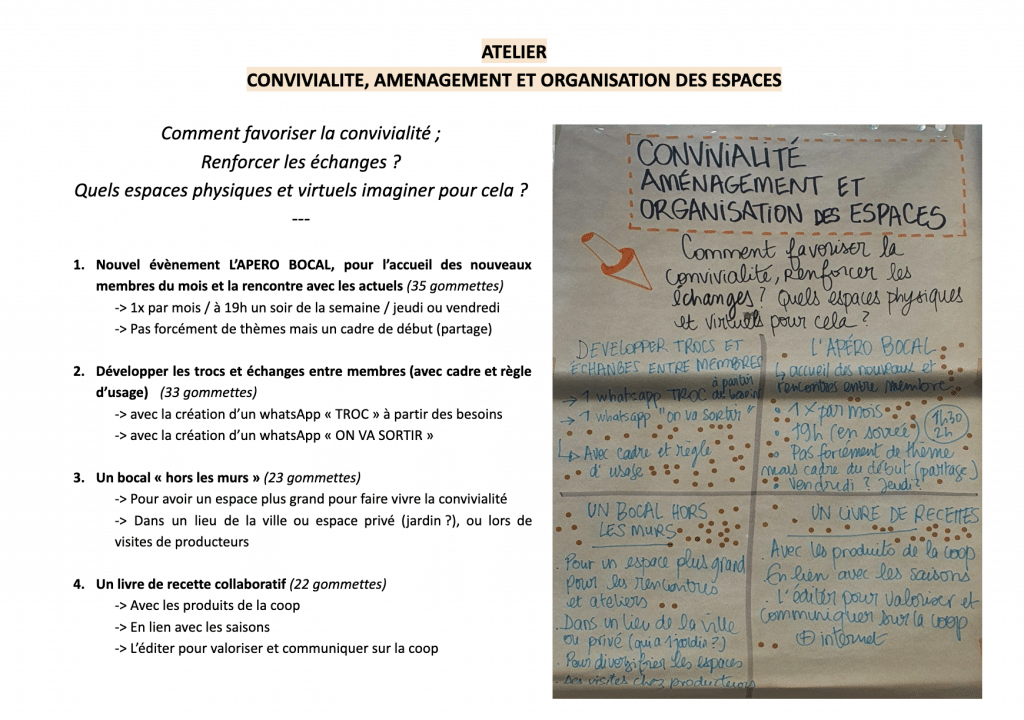 ATELIER
CONVIVIALITE, AMENAGEMENT ET ORGANISATION DES ESPACES
Comment favoriser la convivialité ;
Renforcer les échanges ?
Quels espaces physiques et virtuels imaginer pour cela ?
---
1. Nouvel évènement L’APERO BOCAL, pour l’accueil des nouveaux
membres du mois et la rencontre avec les actuels (35 gommettes)
-> 1x par mois / à 19h un soir de la semaine / jeudi ou vendredi
-> Pas forcément de thèmes mais un cadre de début (partage)
2. Développer les trocs et échanges entre membres (avec cadre et règle
d’usage) (33 gommettes)
-> avec la création d’un whatsApp « TROC » à partir des besoins
-> avec la création d’un whatsApp « ON VA SORTIR »
3. Un bocal « hors les murs » (23 gommettes)
-> Pour avoir un espace plus grand pour faire vivre la convivialité
-> Dans un lieu de la ville ou espace privé (jardin ?), ou lors de
visites de producteurs
4. Un livre de recette collaboratif (22 gommettes)
-> Avec les produits de la coop
-> En lien avec les saisons
-> L’éditer pour valoriser et communiquer sur la coop
CONVIVIALITÉ
AMÉNAGEMENT ET
ORGANISATION DES ESPACES
Comment favoriser la
convivialité, Renforcer les
échanges ? Quels espaces physiques
et virtuels pour cela ?
DEVELOPPER TROCS ET
ÉCHANGES ENTRE MEMBRES
-> 1 whatsapp TROC à partir des besoins
-> 1 whatsapp "on va sortir"
↳ Avec cadre et règle
d'usage
L'APÉRO BOCAL
↳ accueil des nouveaux et
rencontres entre membre
• 1 X par mois
• 19h (en soirée) 1h30 2h
• Pas forcément de thème
mais cadre du début (partage)
• Vendredi ? Jeudi ?
UN BOCAL HORS
LES MURS
. Pour un espace plus grand
pour les rencontres
et ateliers
. Dans un lieu de la ville
ou privé (qui a 1 jardin ?)
. Pour diversifier les espaces
. Des visites chez producteurs
UN LIVRE DE RECETTES
. Avec les produits de la coop
. En lien avec les saisons
. L'éditer pour valoriser et
communiquer sur la coop
⊕ internet